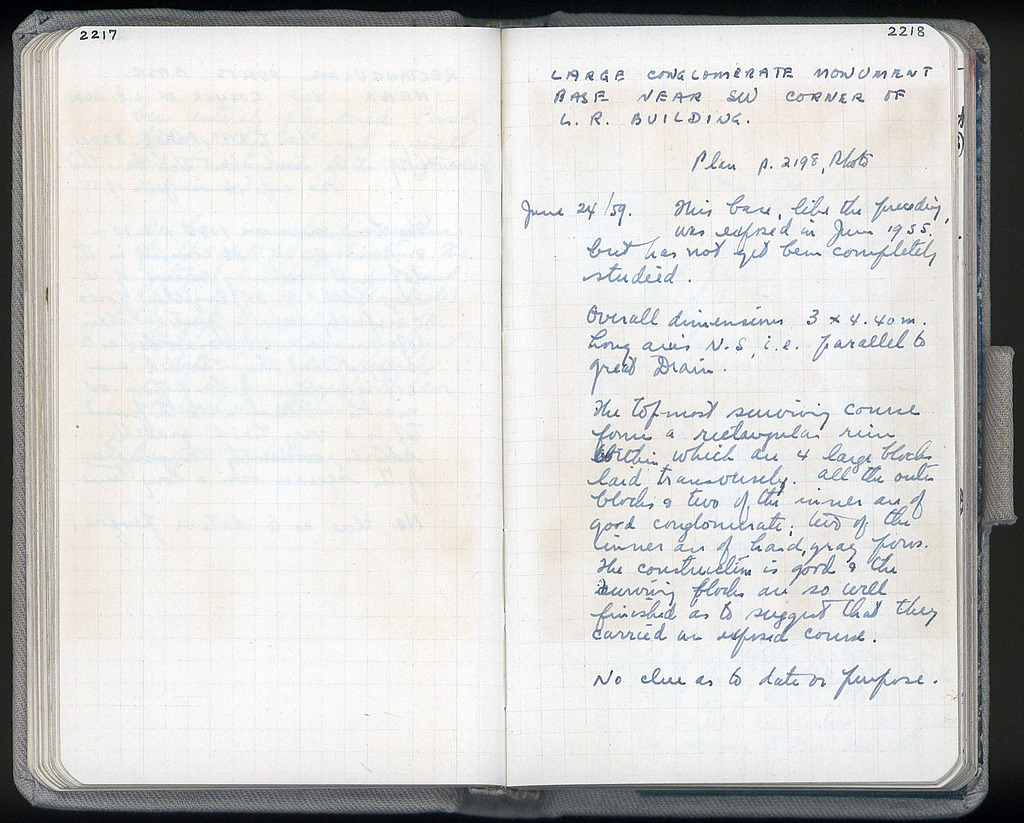 2217
2218
LARGE CONGLOMERATE MONUMENT
BASE NEAR SW CORNER OF
L.R. BUILDING.
Plan p. 2198, Photo
June 24/59. This base, like the preceding,
was exposed in June 1955,
but has not yet been completely
studied.
Overall dimensions 3 x 4.40 m.
Long axis N.S, i.e. parallel to
great Drain.
The topmost surviving course
forms a rectangular rim
within which are 4 large blocks
laid transversely. All the outer
blocks & two of the inner are of
good conglomerate; two of the
inner are of hard, gray poros.
The construction is good & the
surviving blocks are so well
finished as to suggest that they
carried an exposed course.
No clue as to date or purpose.